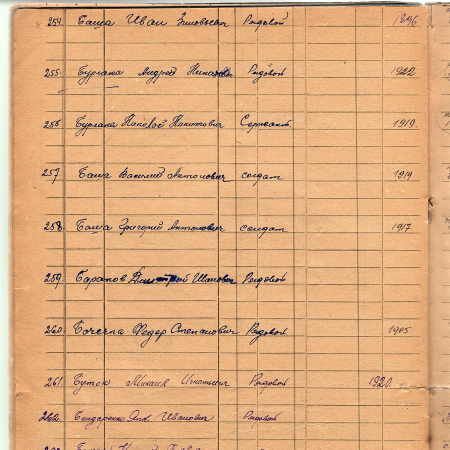 254. Баша Иван Зиновьевич Рядовой 1896
255. Бурлака Андрей Рядовой 1922
256. Бурлака Никитович Сержант 1919.
257 Баша Василий Антонович солдат 1919
258. Баша Григорий Антонович солдат 1917
259 Баранов Дмитрий Иванович Рядовой
260. Федор Степанович Рядовой 1905
261. Михаил Игнатович Рядовой 1920.
262. Бондаренко Яков Иванович Рядовой